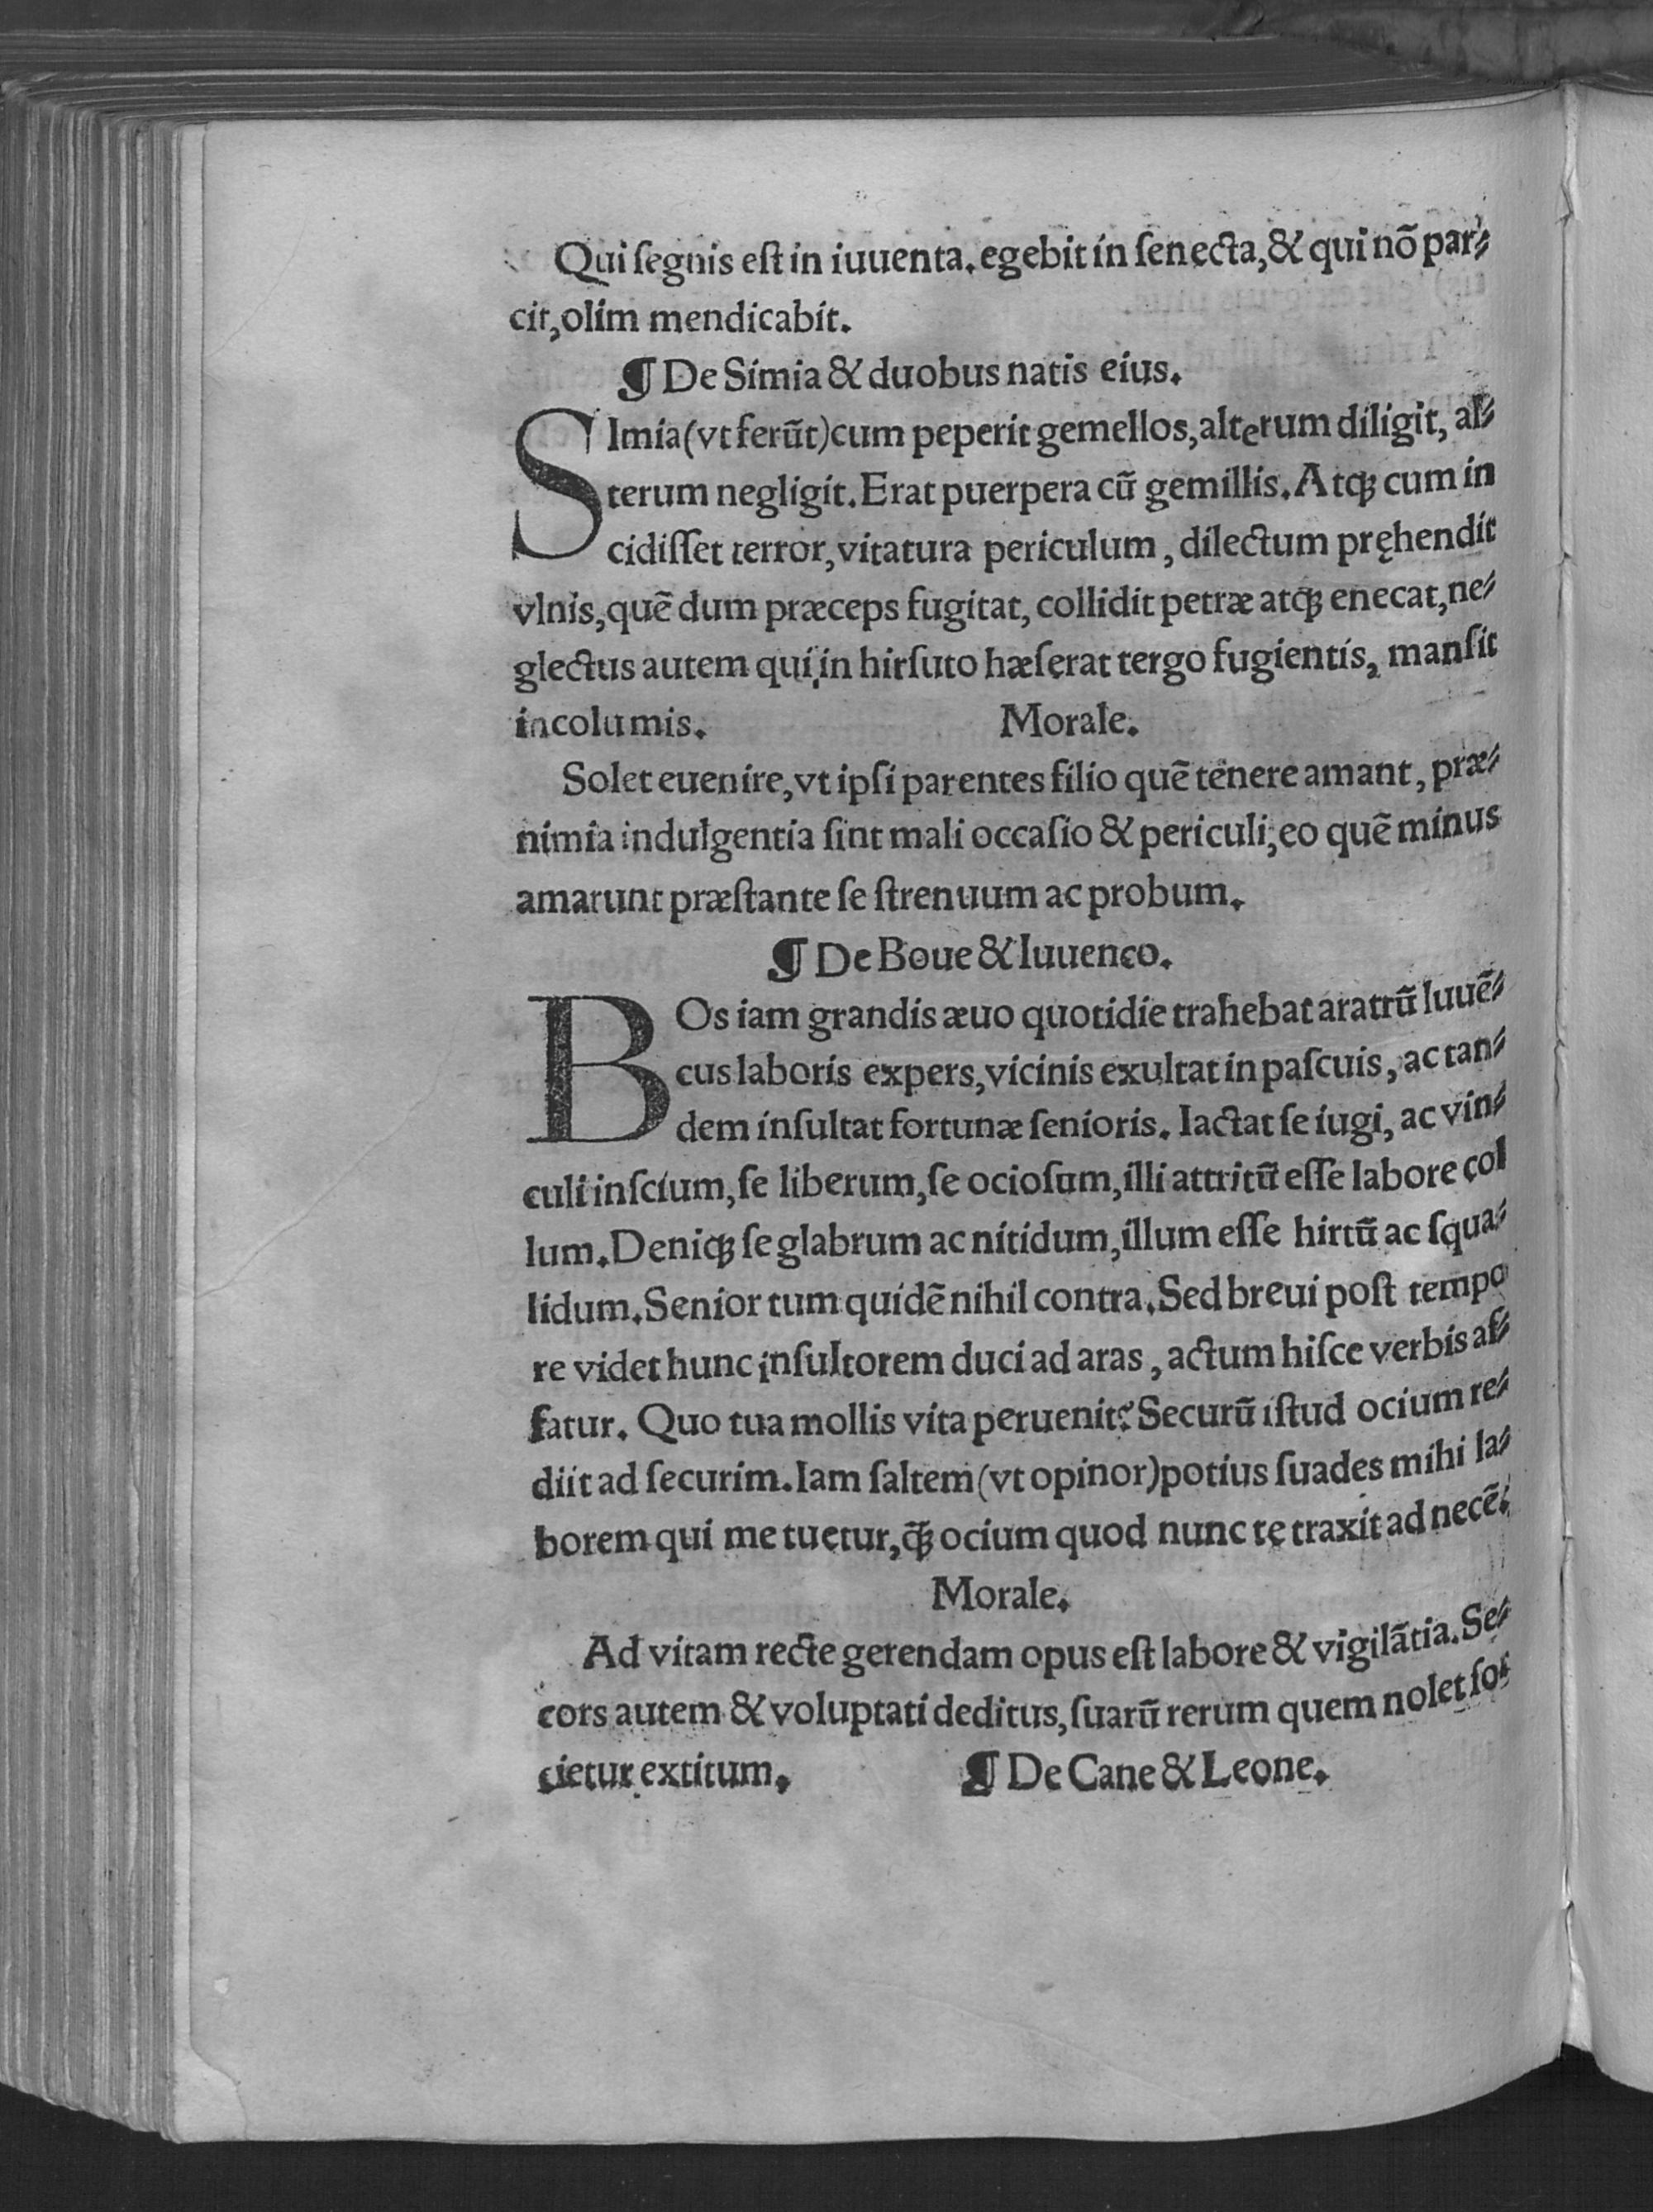 Qui ſegnis eſt in iuuenta. egebit in ſenecta, & qui nõ par⸗
cit, olim mendicabit.
¶ De Simia & duobus natis eius.
SImia (vt ferũt) cum peperit gemellos, alterum diligit, al⸗
terum negligit. Erat puerpera cũ gemillis. Atqꝫ cum in
cidiſſet terror, vitatura periculum, dilectum pręhendit
vlnis, quẽ dum præceps fugitat, collidit petræ atqꝫ enecat, ne⸗
glectus autem qui, in hirſuto hæſerat tergo fugientis, manſit
incolumis. Morale.
Solet euenire, vt ipſi parentes filio quẽ tenere amant, præ⸗
nimia indulgentia ſint mali occaſio & periculi, eo quẽ minus
amarunt præſtante ſe ſtrenuum ac probum.
¶ De Boue & Iuuenco.
BOs iam grandis æuo quotidie trahebat aratrũ Iuuẽ⸗
cus laboris expers, vicinis exultat in paſcuis, ac tan⸗
dem inſultat fortunæ ſenioris. Iactat ſe iugi, ac vin⸗
culi inſcium, ſe liberum, ſe ocioſum, illi attritũ eſſe labore col
lum. Deniqꝫ ſe glabrum ac nitidum, illum eſſe hirtũ ac ſqua⸗
lidum. Senior tum quidẽ nihil contra. Sed breui poſt tempo
re videt hunc inſultorem duci ad aras, actum hiſce verbis af⸗
fatur. Quo tua mollis vita peruenit? Securũ iſtud ocium re⸗
diit ad ſecurim. Iam ſaltem (vt opinor) potius ſuades mihi la⸗
borem qui me tuetur, q̃ꝫ ocium quod nunc te traxit ad necẽ.
Morale.
Ad vitam recte gerendam opus eſt labore & vigilãtia. Se⸗
cors autem & voluptati deditus, ſuarũ rerum quem nolet ſor
cietur extitum. ¶ De Cane & Leone.